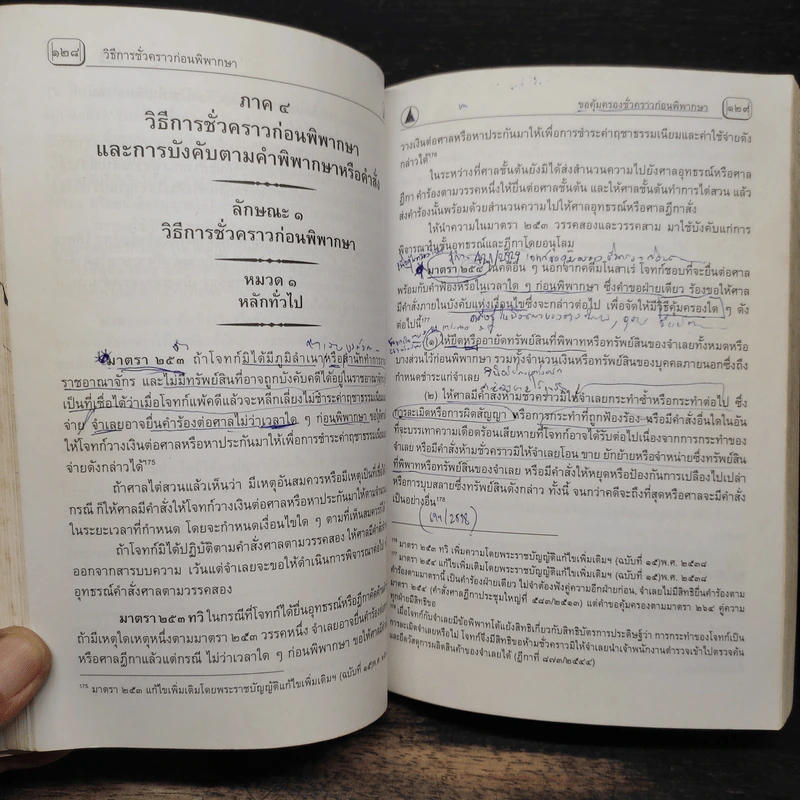 ๑๒๘ วิธีการชั่วคราวก่อนพิพากษา
ภาค ๔
วิธีการชั่วคราวก่อนพิพากษา
และการบังคับตามคำพิพากษาหรือคำสั่ง
ลักษณะ ๑
วิธีการชั่วคราวก่อนพิพากษา
หมวด ๑
หลักทั่วไป
มาตรา ๒๕๓ ถ้าโจทก์มิได้มีภูมิลำเนาหรือสำนักทำการ
ราชอาณาจักร และไม่มีทรัพย์สินที่อาจถูกบังคับคดีได้อยู่ในราชอาณาจักร
เป็นที่เชื่อได้ว่าเมื่อโจทก์แพ้คดีแล้วจะหลีกเลี่ยงไม่ชำระค่าฤชาธรรมเนียม
จ่าย จำเลยอาจยื่นคำร้องต่อศาลไม่ว่าเวลาใด ๆ ก่อนพิพากษา ขอให้
ให้โจทก์วางเงินต่อศาลหรือหาประกันมาให้เพื่อการชำระค่าฤชาธรรมเนียม
จ่ายดังกล่าวได้¹⁷⁵
ถ้าศาลไต่สวนแล้วเห็นว่า มีเหตุอันสมควรหรือมีเหตุเป็นที่เชื่อ
กรณี ก็ให้ศาลมีคำสั่งให้โจทก์วางเงินต่อศาลหรือหาประกันมาให้ตามจำนวน
ในระยะเวลาที่กำหนด โดยจะกำหนดเงื่อนไขใด ๆ ตามที่เห็นสมควรก็ได้
ถ้าโจทก์มิได้ปฏิบัติตามคำสั่งศาลตามวรรคสอง ให้ศาลมีคำสั่ง
ออกจากสารบบความ เว้นแต่จำเลยจะขอให้ดำเนินการพิจารณาต่อไป
อุทธรณ์คำสั่งศาลตามวรรคสอง
มาตรา ๒๕๓ ทวิ ในกรณีที่โจทก์ได้ยื่นอุทธรณ์หรือฎีกาคัดค้าน
ถ้ามีเหตุใดเหตุหนึ่งตามมาตรา ๒๕๓ วรรคหนึ่ง จำเลยอาจยื่นคำร้องต่อ
หรือศาลฎีกาแล้วแต่กรณี ไม่ว่าเวลาใด ๆ ก่อนพิพากษา ขอให้ศาล
¹⁷⁵ มาตรา ๒๕๓ แก้ไขเพิ่มเติมโดยพระราชบัญญัติแก้ไขเพิ่มเติมฯ (ฉบับที่ ๑๕)พ.ศ.
ขอคุ้มครองชั่วคราวก่อนพิพากษา ๑๒๙
วางเงินต่อศาลหรือหาประกันมาให้เพื่อการชำระค่าฤชาธรรมเนียมและค่าใช้จ่ายดัง
กล่าวได้¹⁷⁶
ในระหว่างที่ศาลชั้นต้นยังมิได้ส่งสำนวนความไปยังศาลอุทธรณ์หรือศาล
ฎีกา คำร้องตามวรรคหนึ่งให้ยื่นต่อศาลชั้นต้น และให้ศาลชั้นต้นทำการไต่สวน แล้ว
ส่งคำร้องนั้นพร้อมด้วยสำนวนความไปให้ศาลอุทธรณ์หรือศาลฎีกาสั่ง
ให้นำความในมาตรา ๒๕๓ วรรคสองและวรรคสาม มาใช้บังคับแก่การ
พิจารณาในชั้นอุทธรณ์และฎีกาโดยอนุโลม
มาตรา ๒๕๔ ในคดีอื่น ๆ นอกจากคดีมโนสาเร่ โจทก์ชอบที่จะยื่นต่อศาล
พร้อมกับคำฟ้องหรือในเวลาใด ๆ ก่อนพิพากษา ซึ่งคำขอฝ่ายเดียว ร้องขอให้ศาล
มีคำสั่งภายในบังคับแห่งเงื่อนไขซึ่งจะกล่าวต่อไป เพื่อจัดให้มีวิธีคุ้มครองใด ๆ ดัง
ต่อไปนี้¹⁷⁷
(๑) ให้ยึดหรืออายัดทรัพย์สินที่พิพาทหรือทรัพย์สินของจำเลยทั้งหมดหรือ
บางส่วนไว้ก่อนพิพากษา รวมทั้งจำนวนเงินหรือทรัพย์สินของบุคคลภายนอกซึ่งถึง
กำหนดชำระแก่จำเลย
(๒) ให้ศาลมีคำสั่งห้ามชั่วคราวมิให้จำเลยกระทำซ้ำหรือกระทำต่อไป ซึ่ง
การละเมิดหรือการผิดสัญญา หรือการกระทำที่ถูกฟ้องร้อง หรือมีคำสั่งอื่นใดในอัน
ที่จะบรรเทาความเดือดร้อนเสียหายที่โจทก์อาจได้รับต่อไปเนื่องจากการกระทำของ
จำเลย หรือมีคำสั่งห้ามชั่วคราวมิให้จำเลยโอน ขาย ยักย้ายหรือจำหน่ายซึ่งทรัพย์สิน
ที่พิพาทหรือทรัพย์สินของจำเลย หรือมีคำสั่งให้หยุดหรือป้องกันการเปลืองไปเปล่า
หรือการบุบสลายซึ่งทรัพย์สินดังกล่าว ทั้งนี้ จนกว่าคดีจะถึงที่สุดหรือศาลจะมีคำสั่ง
เป็นอย่างอื่น¹⁷⁸
¹⁷⁶ มาตรา ๒๕๓ ทวิ เพิ่มความโดยพระราชบัญญัติแก้ไขเพิ่มเติมฯ (ฉบับที่ ๑๕)พ.ศ. ๒๕๓๘
¹⁷⁷ มาตรา ๒๕๔ แก้ไขเพิ่มเติมโดยพระราชบัญญัติแก้ไขเพิ่มเติมฯ (ฉบับที่ ๑๕)พ.ศ. ๒๕๓๘
คำร้องตามมาตรานี้ เป็นคำร้องฝ่ายเดียว ไม่จำต้องฟังคู่ความอีกฝ่ายก่อน จำเลยไม่มีสิทธิยื่นคำร้องตาม
มาตรา ๒๕๔ (คำสั่งศาลฎีกาประชุมใหญ่ที่ ๕๘๓/๒๕๑๓) แต่คำขอคุ้มครองตามมาตรา ๒๖๔ คู่ความ
ทุกฝ่ายมีสิทธิขอ
¹⁷⁸ เมื่อโจทก์กับจำเลยมีข้อพิพาทโต้แย้งสิทธิเกี่ยวกับสิทธิบัตรการประดิษฐ์ว่า การกระทำของโจทก์เป็น
การละเมิดจำเลยหรือไม่ โจทก์จึงมีสิทธิขอห้ามชั่วคราวมิให้จำเลยนำเจ้าพนักงานตำรวจเข้าไปตรวจค้น
และยึดวัสดุการผลิตสินค้าของจำเลยได้ (ฎีกาที่ ๘๗๓/๒๕๔๔)